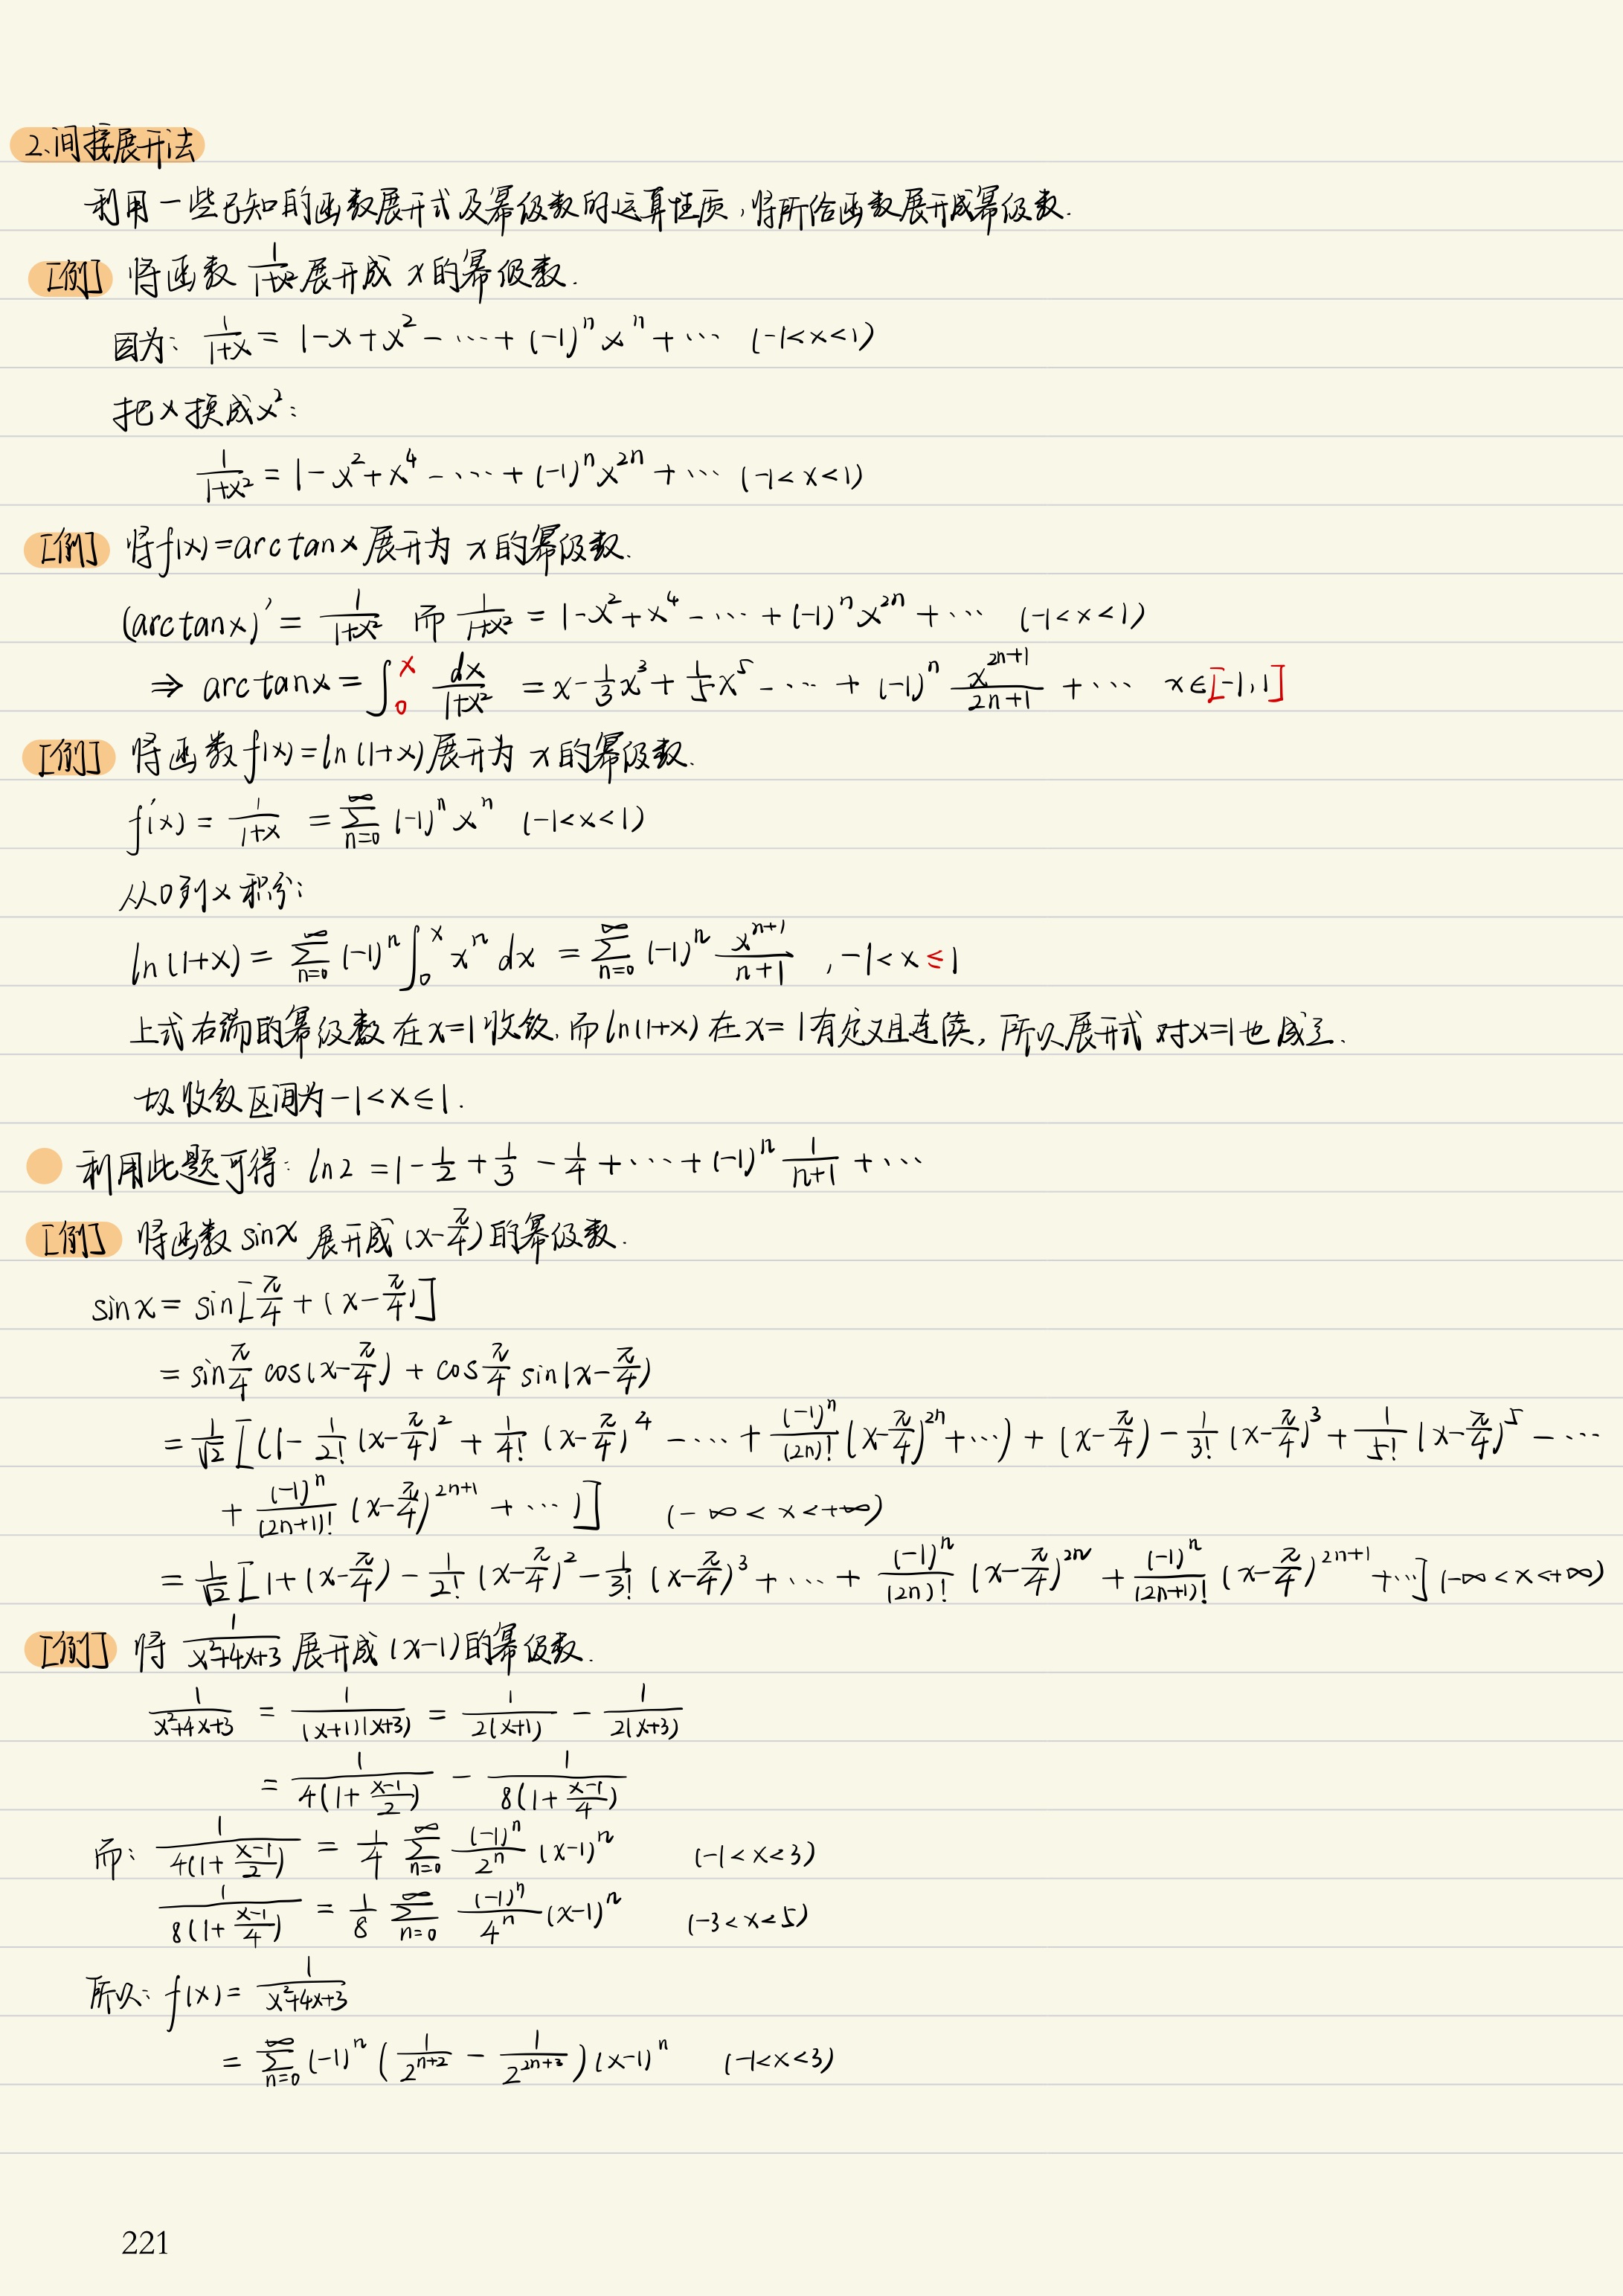 2、间接展开法
利用一些已知的函数展开式及幂级数的运算性质,将所给函数展开成幂级数.
[例] 将函数 1/(1+x²) 展开成 x 的幂级数.
因为: 1/(1+x) = 1-x+x²-…+(-1)ⁿxⁿ+… (-1<x<1)
把x换成x²:
1/(1+x²) = 1-x²+x⁴-…+(-1)ⁿx²ⁿ+… (-1<x<1)
[例] 将f(x)=arctanx展开为 x 的幂级数.
(arctanx)′ = 1/(1+x²) 而 1/(1+x²) = 1-x²+x⁴-…+(-1)ⁿx²ⁿ+… (-1<x<1)
⇒ arctanx = ∫₀ˣ dx/(1+x²) = x-1/3x³+1/5x⁵-…+(-1)ⁿ x²ⁿ⁺¹/(2n+1) +… x∈[-1,1]
[例] 将函数f(x)=ln(1+x)展开为 x 的幂级数.
f′(x) = 1/(1+x) = ∑_{n=0}^{∞} (-1)ⁿxⁿ (-1<x<1)
从0到x积分:
ln(1+x) = ∑_{n=0}^{∞} (-1)ⁿ∫₀ˣ xⁿ dx = ∑_{n=0}^{∞} (-1)ⁿ xⁿ⁺¹/(n+1) , -1<x≤1
上式右端的幂级数在x=1收敛,而ln(1+x)在x=1有定义且连续,所以展开式对x=1也成立.
故收敛区间为-1<x≤1.
利用此题可得: ln2 = 1-1/2+1/3-1/4+…+(-1)ⁿ 1/(n+1) +…
[例] 将函数sinx 展开成(x-π/4)的幂级数.
sinx = sin[π/4+(x-π/4)]
= sin π/4 cos(x-π/4) + cos π/4 sin(x-π/4)
= 1/√2 [(1-1/2!(x-π/4)²+1/4!(x-π/4)⁴-…+(-1)ⁿ/(2n)!(x-π/4)²ⁿ+…)+(x-π/4)-1/3!(x-π/4)³+1/5!(x-π/4)⁵-…
+(-1)ⁿ/(2n+1)!(x-π/4)²ⁿ⁺¹+…)] (-∞<x<+∞)
= 1/√2 [1+(x-π/4)-1/2!(x-π/4)²-1/3!(x-π/4)³+…+(-1)ⁿ/(2n)!(x-π/4)²ⁿ+(-1)ⁿ/(2n+1)!(x-π/4)²ⁿ⁺¹+…] (-∞<x<+∞)
[例] 将 1/(x²+4x+3) 展开成(x-1)的幂级数.
1/(x²+4x+3) = 1/((x+1)(x+3)) = 1/(2(x+1)) - 1/(2(x+3))
= 1/(4(1+(x-1)/2)) - 1/(8(1+(x-1)/4))
而: 1/(4(1+(x-1)/2)) = 1/4 ∑_{n=0}^{∞} (-1)ⁿ/2ⁿ (x-1)ⁿ (-1<x<3)
1/(8(1+(x-1)/4)) = 1/8 ∑_{n=0}^{∞} (-1)ⁿ/4ⁿ (x-1)ⁿ (-3<x<5)
所以: f(x) = 1/(x²+4x+3)
= ∑_{n=0}^{∞} (-1)ⁿ(1/2ⁿ⁺² - 1/2²ⁿ⁺³)(x-1)ⁿ (-1<x<3)
221